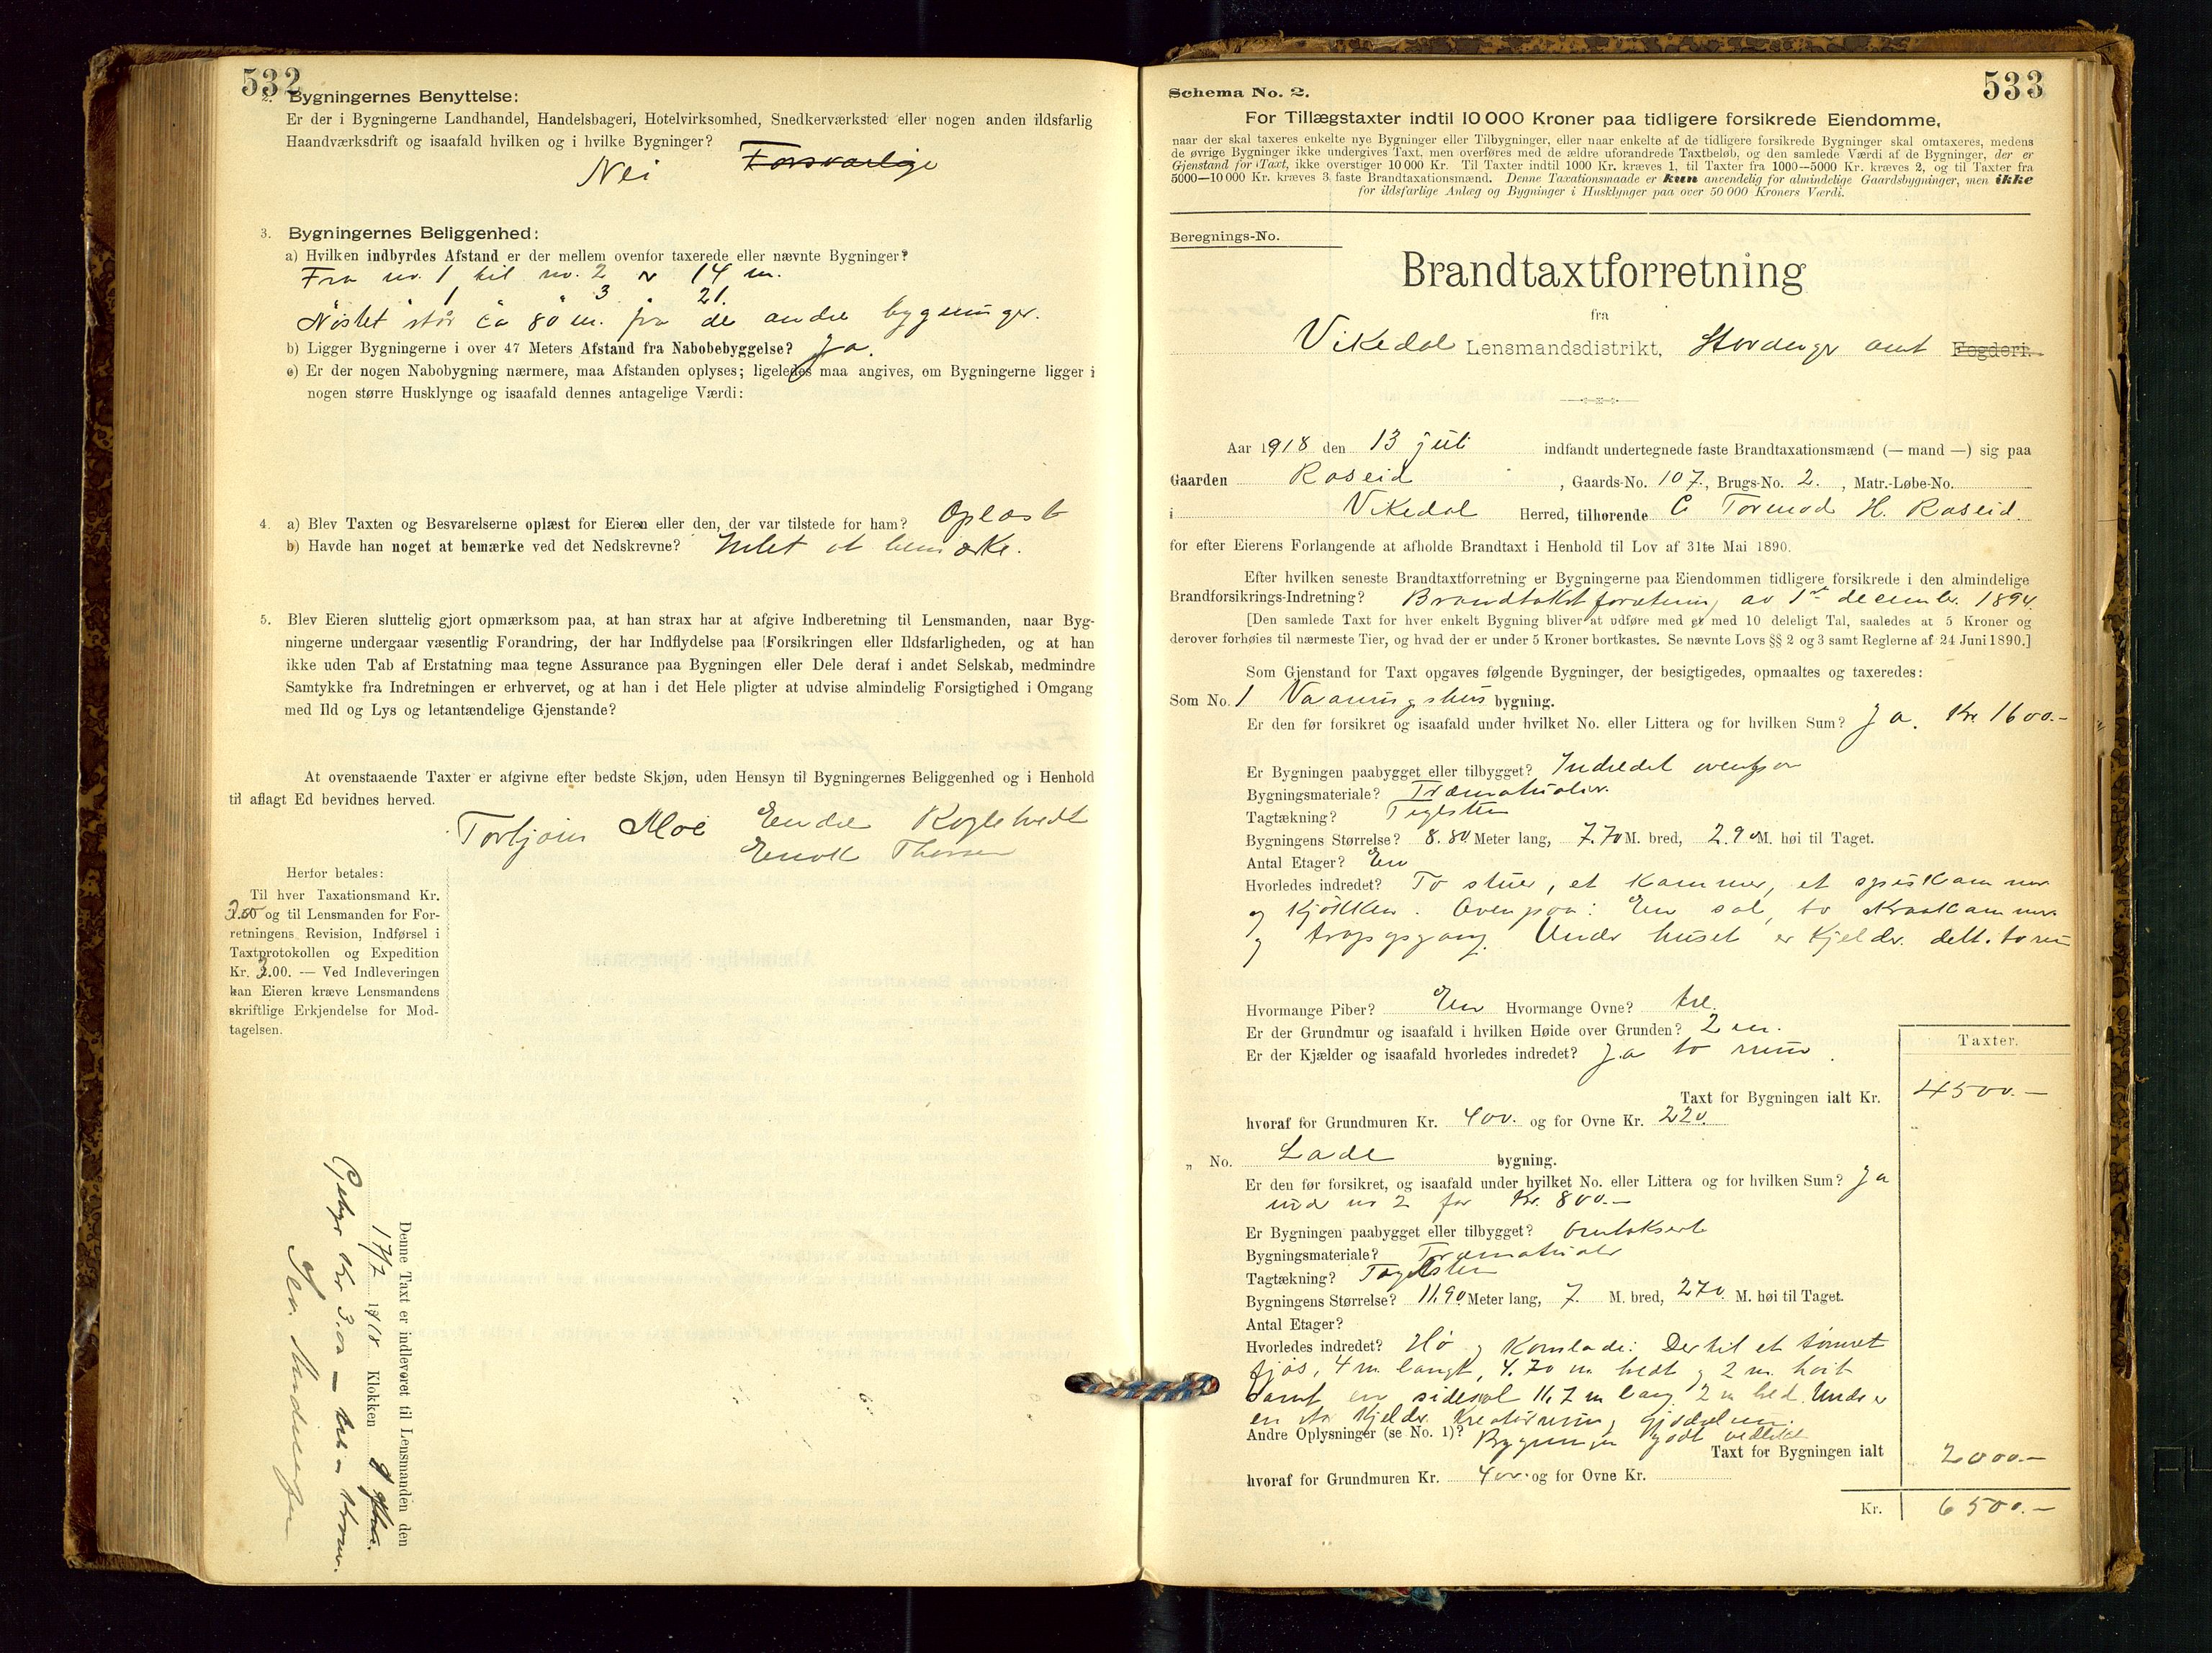 532
2. Bygningernes Benyttelse:
Er der i Bygningerne Landhandel, Handelsbageri, Hotelvirksomhed, Snedkerværksted eller nogen anden ildsfarlig
Haandværksdrift og isaafald hvilken og i hvilke Bygninger?
Nei Forsvarlige
3. Bygningernes Beliggenhed:
a) Hvilken indbyrdes Afstand er der mellem ovenfor taxerede eller nævnte Bygninger?
Fra no. 1 til no. 2 er 14 m.
" 1 " 3 " 21.
Nöstet står ca 80 m. fra de andre bygninger.
b) Ligger Bygningerne i over 47 Meters Afstand fra Nabobebyggelse? Ja.
c) Er der nogen Nabobygning nærmere, maa Afstanden oplyses; ligeledes maa angives, om Bygningerne ligger i
nogen større Husklynge og isaafald dennes antagelige Værdi:
4. a) Blev Taxten og Besvarelserne oplæst for Eieren eller den, der var tilstede for ham? Oplæst
b) Havde han noget at bemærke ved det Nedskrevne? Intet at bemærke.
5. Blev Eieren sluttelig gjort opmærksom paa, at han strax har at afgive Indberetning til Lensmanden, naar Byg-
ningerne undergaar væsentlig Forandring, der har Indflydelse paa Forsikringen eller Ildsfarligheden, og at han
ikke uden Tab af Erstatning maa tegne Assurance paa Bygningen eller Dele deraf i andet Selskab, medmindre
Samtykke fra Indretningen er erhvervet, og at han i det Hele pligter at udvise almindelig Forsigtighed i Omgang
med Ild og Lys og letantændelige Gjenstande?
At ovenstaaende Taxter er afgivne efter bedste Skjøn, uden Hensyn til Bygningernes Beliggenhed og i Henhold
til aflagt Ed bevidnes herved.
Torbjørn Moe Endre
Enok Thorsen
Herfor betales:
Til hver Taxationsmand Kr.
3.00 og til Lensmanden for For-
retningens Revision, Indførsel i
Taxtprotokollen og Expedition
Kr. 3.00. — Ved Indleveringen
kan Eieren kræve Lensmandens
skriftlige Erkjendelse for Mod-
tagelsen.
Denne Taxt er indleveret til Lensmanden den
17/7 1918 Klokken 9
Gebyr Kr 3.00 — tre kroner.
533
Schema No. 2.
For Tillægstaxter indtil 10 000 Kroner paa tidligere forsikrede Eiendomme,
naar der skal taxeres enkelte nye Bygninger eller Tilbygninger, eller naar enkelte af de tidligere forsikrede Bygninger skal omtaxeres, medens
de øvrige Bygninger ikke undergives Taxt, men overføres med de ældre uforandrede Taxtbeløb, og den samlede Værdi af de Bygninger, der er
Gjenstand for Taxt, ikke overstiger 10 000 Kr. Til Taxter indtil 1000 Kr. kræves 1, til Taxter fra 1000—5000 Kr. kræves 2, og til Taxter fra
5000—10 000 Kr. kræves 3 faste Brandtaxationsmænd. Denne Taxationsmaade er kun anvendelig for almindelige Gaardsbygninger, men ikke
for ildsfarlige Anlæg og Bygninger i Husklynger paa over 50 000 Kroners Værdi.
Beregnings-No.
Brandtaxtforretning
fra
Vikedal Lensmandsdistrikt, Stavanger amt Fogderi.
Aar 1918 den 13 juli indfandt undertegnede faste Brandtaxationsmænd (— mand —) sig paa
Gaarden Raseid, Gaards-No. 107, Brugs-No. 2., Matr.-Løbe-No.
i Vikedal Herred, tilhørende Tormod H. Raseid.
for efter Eierens Forlangende at afholde Brandtaxt i Henhold til Lov af 31te Mai 1890.
Efter hvilken seneste Brandtaxtforretning er Bygningerne paa Eiendommen tidligere forsikrede i den almindelige
Brandforsikrings-Indretning? Brandtakstforretning av 1ste december 1894.
[Den samlede Taxt for hver enkelt Bygning bliver at udføre med et med 10 deleligt Tal, saaledes at 5 Kroner og
derover forhøies til nærmeste Tier, og hvad der er under 5 Kroner bortkastes. Se nævnte Lovs §§ 2 og 3 samt Reglerne af 24 Juni 1890.]
Som Gjenstand for Taxt opgaves følgende Bygninger, der besigtigedes, opmaaltes og taxeredes:
Som No. 1 Vaaningshus bygning.
Er den før forsikret og isaafald under hvilket No. eller Littera og for hvilken Sum? Ja. Kr 1600.-
Er Bygningen paabygget eller tilbygget? Indredet ovenpaa
Bygningsmateriale? Træmaterialer.
Tagtækning? Teglsten
Bygningens Størrelse? 8.80 Meter lang, 7.70 M. bred, 2.90 M. høi til Taget.
Antal Etager? En
Hvorledes indredet? To stuer, et kammer, et spiskammer
og kjøkken. Ovenpaa: En sal, to kammer
og trapgang. Under huset er kjelder delt i to rum
Hvormange Piber? En Hvormange Ovne? tre.
Er der Grundmur og isaafald i hvilken Høide over Grunden? 2 m.
Er der Kjælder og isaafald hvorledes indredet? Ja to rum.
Taxter.
Taxt for Bygningen ialt Kr. 4500.—
hvoraf for Grundmuren Kr. 400. og for Ovne Kr. 220.
„ No. Lade bygning.
Er den før forsikret, og isaafald under hvilket No. eller Littera og for hvilken Sum? Ja
under no 2 for Kr. 800.—
Er Bygningen paabygget eller tilbygget? Omtaksert
Bygningsmateriale? Træmaterialer
Tagtækning? Teglsten
Bygningens Størrelse? 11.90 Meter lang, 7. M. bred, 270. M. høi til Taget.
Antal Etager?
Hvorledes indredet? Hø og kornlade: Dertil et tømret
fjøs, 4 m. langt, 4.70 m. bredt og 2 m. høit
samt en sidesval 11,7 m lang 2 m bred. Under er
en kjelder
Andre Oplysninger (se No. 1)? Bygningen godt vedlikeh.
Taxt for Bygningen ialt 2000.—
hvoraf for Grundmuren Kr. 400. og for Ovne Kr.
Kr. 6500.—